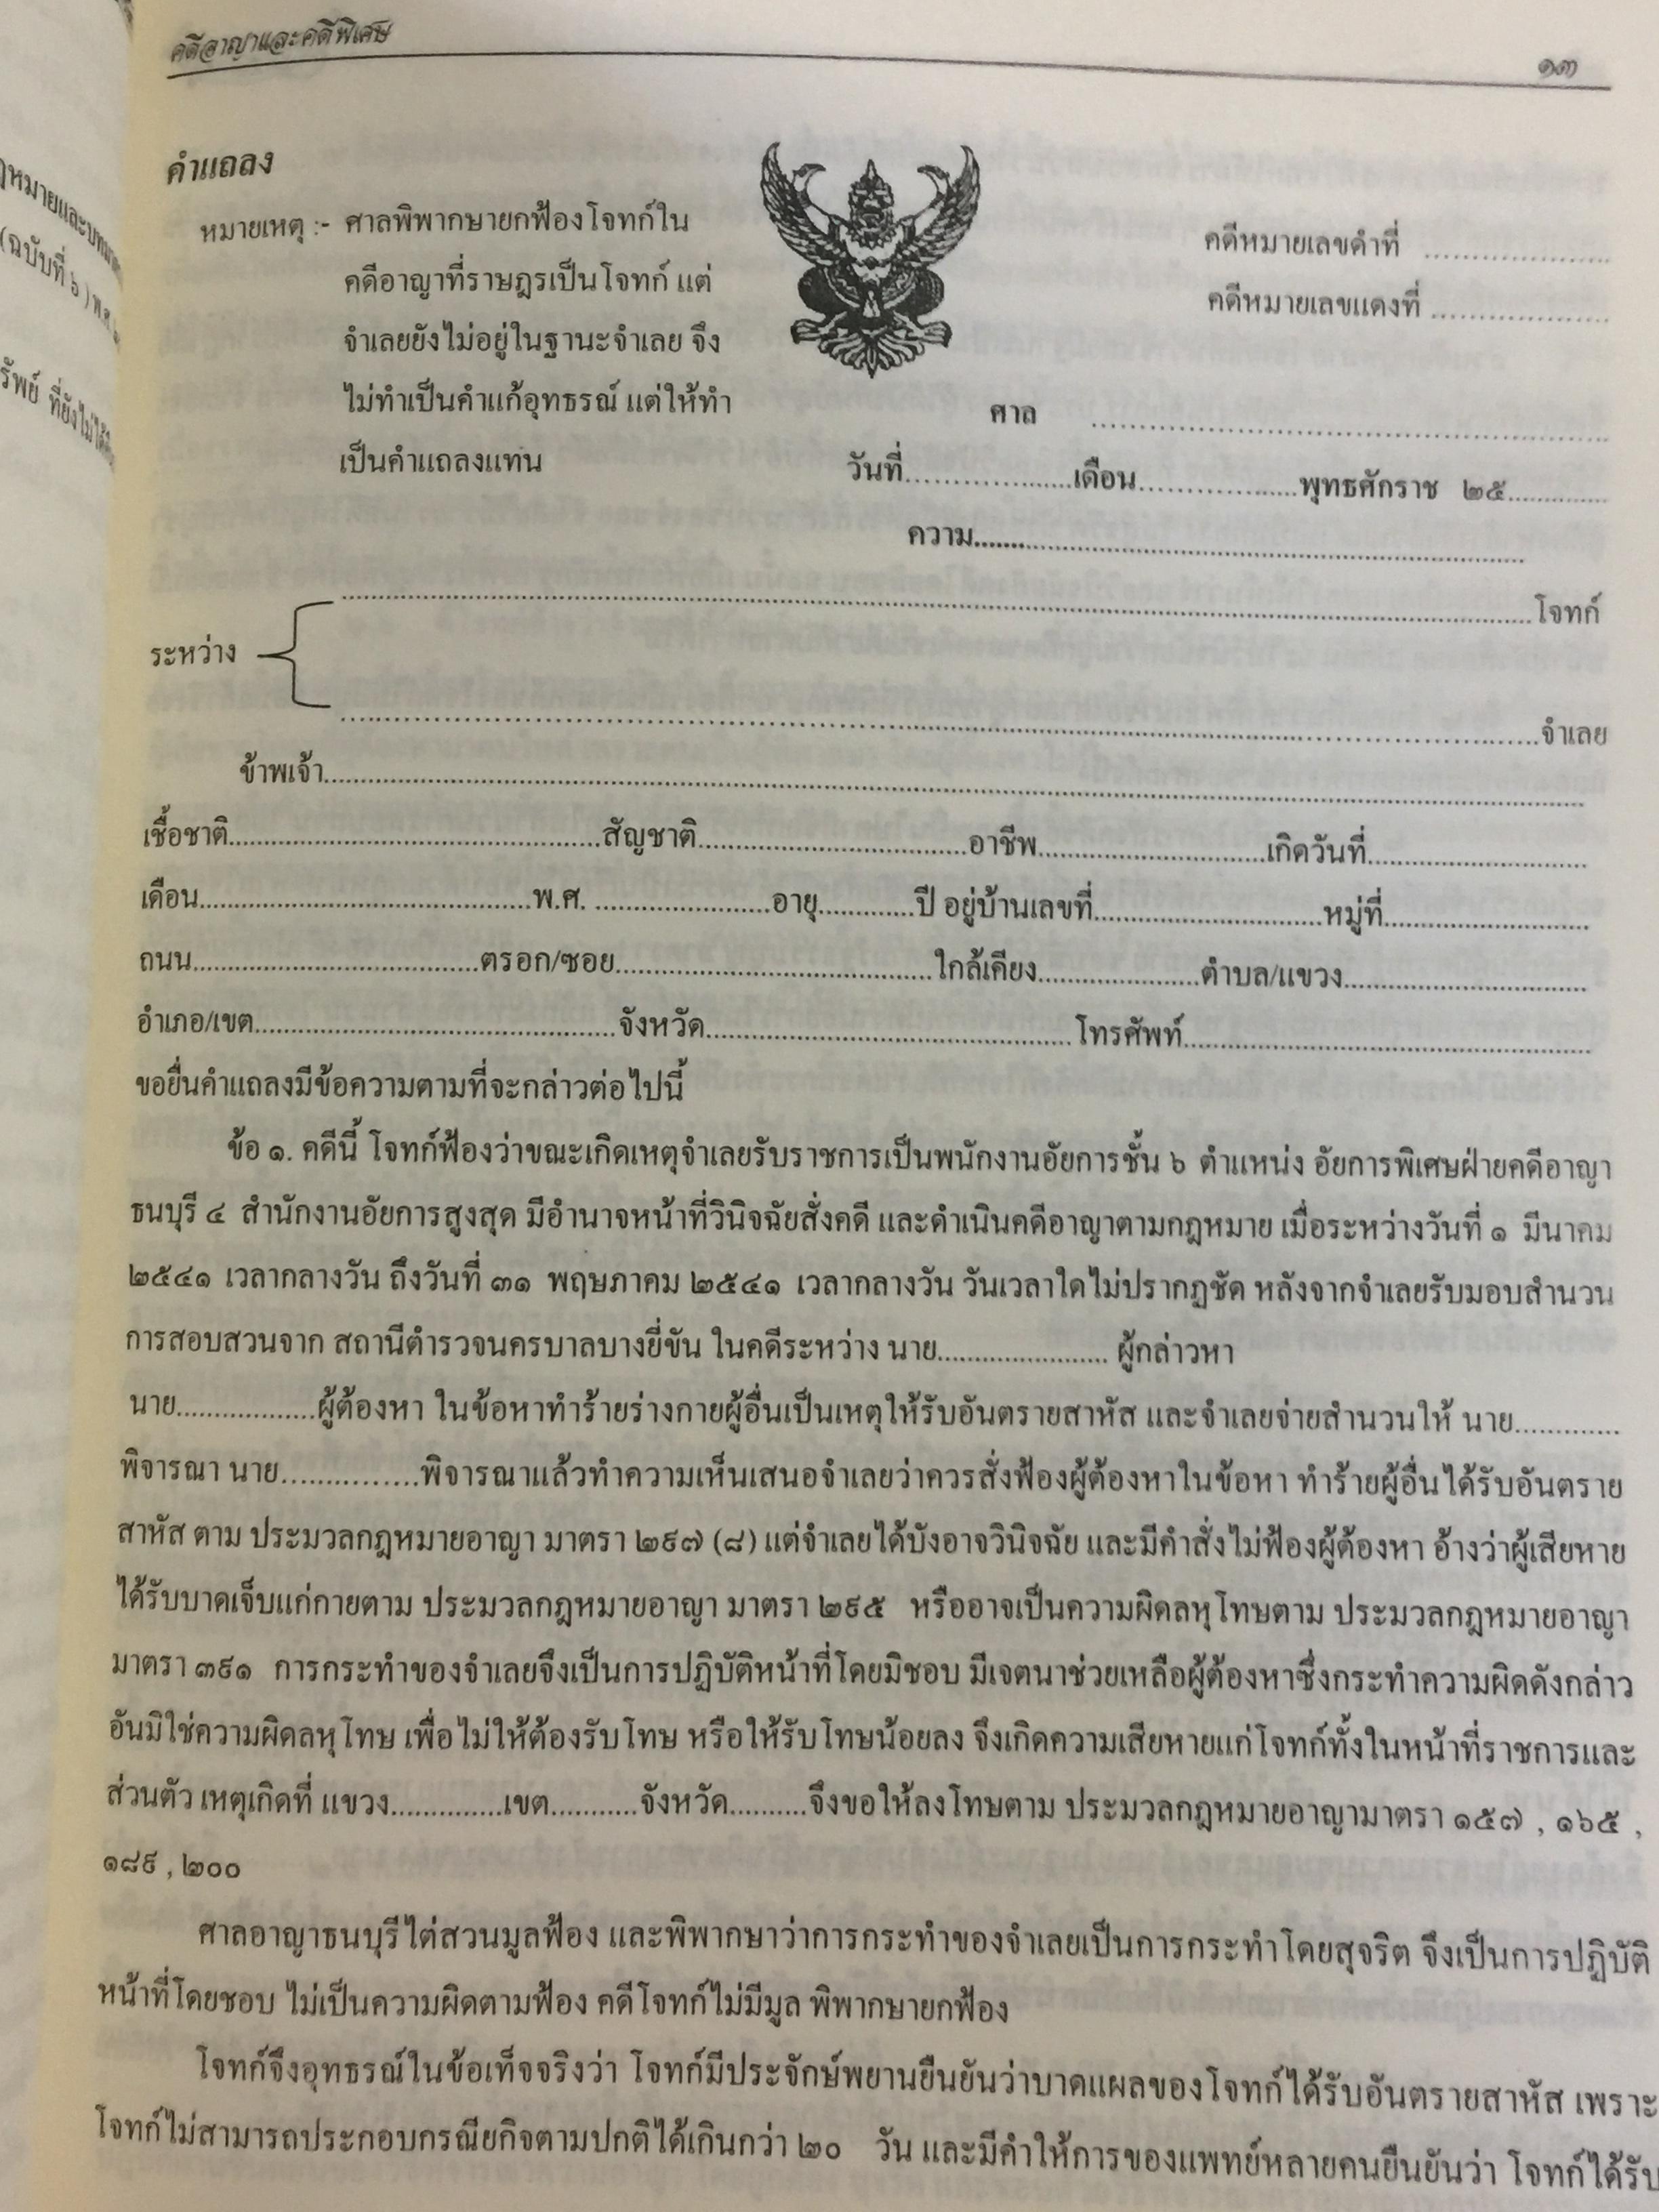 คดีอาญาและคดีพิเศษ
๑๓
คำแถลง
หมายเหตุ :- ศาลพิพากษายกฟ้องโจทก์ใน
คดีอาญาที่ราษฎรเป็นโจทก์ แต่
จำเลยยังไม่อยู่ในฐานะจำเลย จึง
ไม่ทำเป็นคำแก้อุทธรณ์ แต่ให้ทำ
เป็นคำแถลงแทน
คดีหมายเลขดำที่ ....................
คดีหมายเลขแดงที่ ....................
ศาล ............................................................
วันที่....................เดือน....................พุทธศักราช ๒๕.............
ความ......................................................................
......................................................................โจทก์
ระหว่าง
......................................................................จำเลย
ข้าพเจ้า......................................................................
เชื้อชาติ..............................สัญชาติ..............................อาชีพ..............................เกิดวันที่..............................
เดือน..............................พ.ศ. ........................อายุ.............ปี อยู่บ้านเลขที่..............................หมู่ที่..............................
ถนน..............................ตรอก/ซอย..............................ใกล้เคียง......................ตำบล/แขวง..............................
อำเภอ/เขต..............................จังหวัด..............................โทรศัพท์..............................
ขอยื่นคำแถลงมีข้อความตามที่จะกล่าวต่อไปนี้
ข้อ ๑. คดีนี้ โจทก์ฟ้องว่าขณะเกิดเหตุจำเลยรับราชการเป็นพนักงานอัยการชั้น ๖ ตำแหน่ง อัยการพิเศษฝ่ายคดีอาญา
ธนบุรี ๔ สำนักงานอัยการสูงสุด มีอำนาจหน้าที่วินิจฉัยสั่งคดี และดำเนินคดีอาญาตามกฎหมาย เมื่อระหว่างวันที่ ๑ มีนาคม
๒๕๔๑ เวลากลางวัน ถึงวันที่ ๓๑ พฤษภาคม ๒๕๔๑ เวลากลางวัน วันเวลาใดไม่ปรากฏชัด หลังจากจำเลยรับมอบสำนวน
การสอบสวนจาก สถานีตำรวจนครบาลบางยี่ขัน ในคดีระหว่าง นาย....................... ผู้กล่าวหา
นาย...................ผู้ต้องหา ในข้อหาทำร้ายร่างกายผู้อื่นเป็นเหตุให้รับอันตรายสาหัส และจำเลยจ่ายสำนวนให้ นาย..............
พิจารณา นาย................พิจารณาแล้วทำความเห็นเสนอจำเลยว่าควรสั่งฟ้องผู้ต้องหาในข้อหา ทำร้ายผู้อื่นได้รับอันตราย
สาหัส ตาม ประมวลกฎหมายอาญา มาตรา ๒๙๗ (๘) แต่จำเลยได้บังอาจวินิจฉัย และมีคำสั่งไม่ฟ้องผู้ต้องหา อ้างว่าผู้เสียหาย
ได้รับบาดเจ็บแก่กายตาม ประมวลกฎหมายอาญา มาตรา ๒๙๕ หรืออาจเป็นความผิดลหุโทษตาม ประมวลกฎหมายอาญา
มาตรา ๓๙๑ การกระทำของจำเลยจึงเป็นการปฏิบัติหน้าที่โดยมิชอบ มีเจตนาช่วยเหลือผู้ต้องหาซึ่งกระทำความผิดดังกล่าว
อันมิใช่ความผิดลหุโทษ เพื่อไม่ให้ต้องรับโทษ หรือให้รับโทษน้อยลง จึงเกิดความเสียหายแก่โจทก์ทั้งในหน้าที่ราชการและ
ส่วนตัว เหตุเกิดที่ แขวง...............เขต...........จังหวัด..........จึงขอให้ลงโทษตาม ประมวลกฎหมายอาญามาตรา ๑๕๗ , ๑๖๕ ,
๑๘๙ , ๒๐๐
ศาลอาญาธนบุรีไต่สวนมูลฟ้อง และพิพากษาว่าการกระทำของจำเลยเป็นการกระทำโดยสุจริต จึงเป็นการปฏิบัติ
หน้าที่โดยชอบ ไม่เป็นความผิดตามฟ้อง คดีโจทก์ไม่มีมูล พิพากษายกฟ้อง
โจทก์จึงอุทธรณ์ในข้อเท็จจริงว่า โจทก์มีประจักษ์พยานยืนยันว่าบาดแผลของโจทก์ได้รับอันตรายสาหัส เพราะ
โจทก์ไม่สามารถประกอบกรณียกิจตามปกติได้เกินกว่า ๒๐ วัน และมีคำให้การของแพทย์หลายคนยืนยันว่า โจทก์ได้รับ